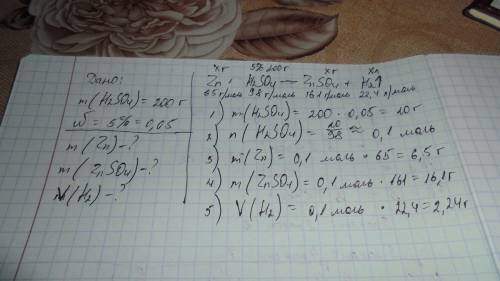 Дано:
m(H2SO4)=200 г
ω=5%=0,05
m(Zn)-?
m(ZnSO4)-?
V(H2)-?
xг 5% 200г xг xл
Zn + H2SO4 — ZnSO4 + H2↑
65 г/моль 98 г/моль 161 г/моль 22,4 л/моль
1) m(H2SO4) = 200 · 0,05 = 10 г
2) n(H2SO4) = 10/98 ≈ 0,1 моль
3) m(Zn) = 0,1 моль · 65 = 6,5 г
4) m(ZnSO4) = 0,1 моль · 161 = 16,1 г
5) V(H2) = 0,1 моль · 22,4 = 2,24 г